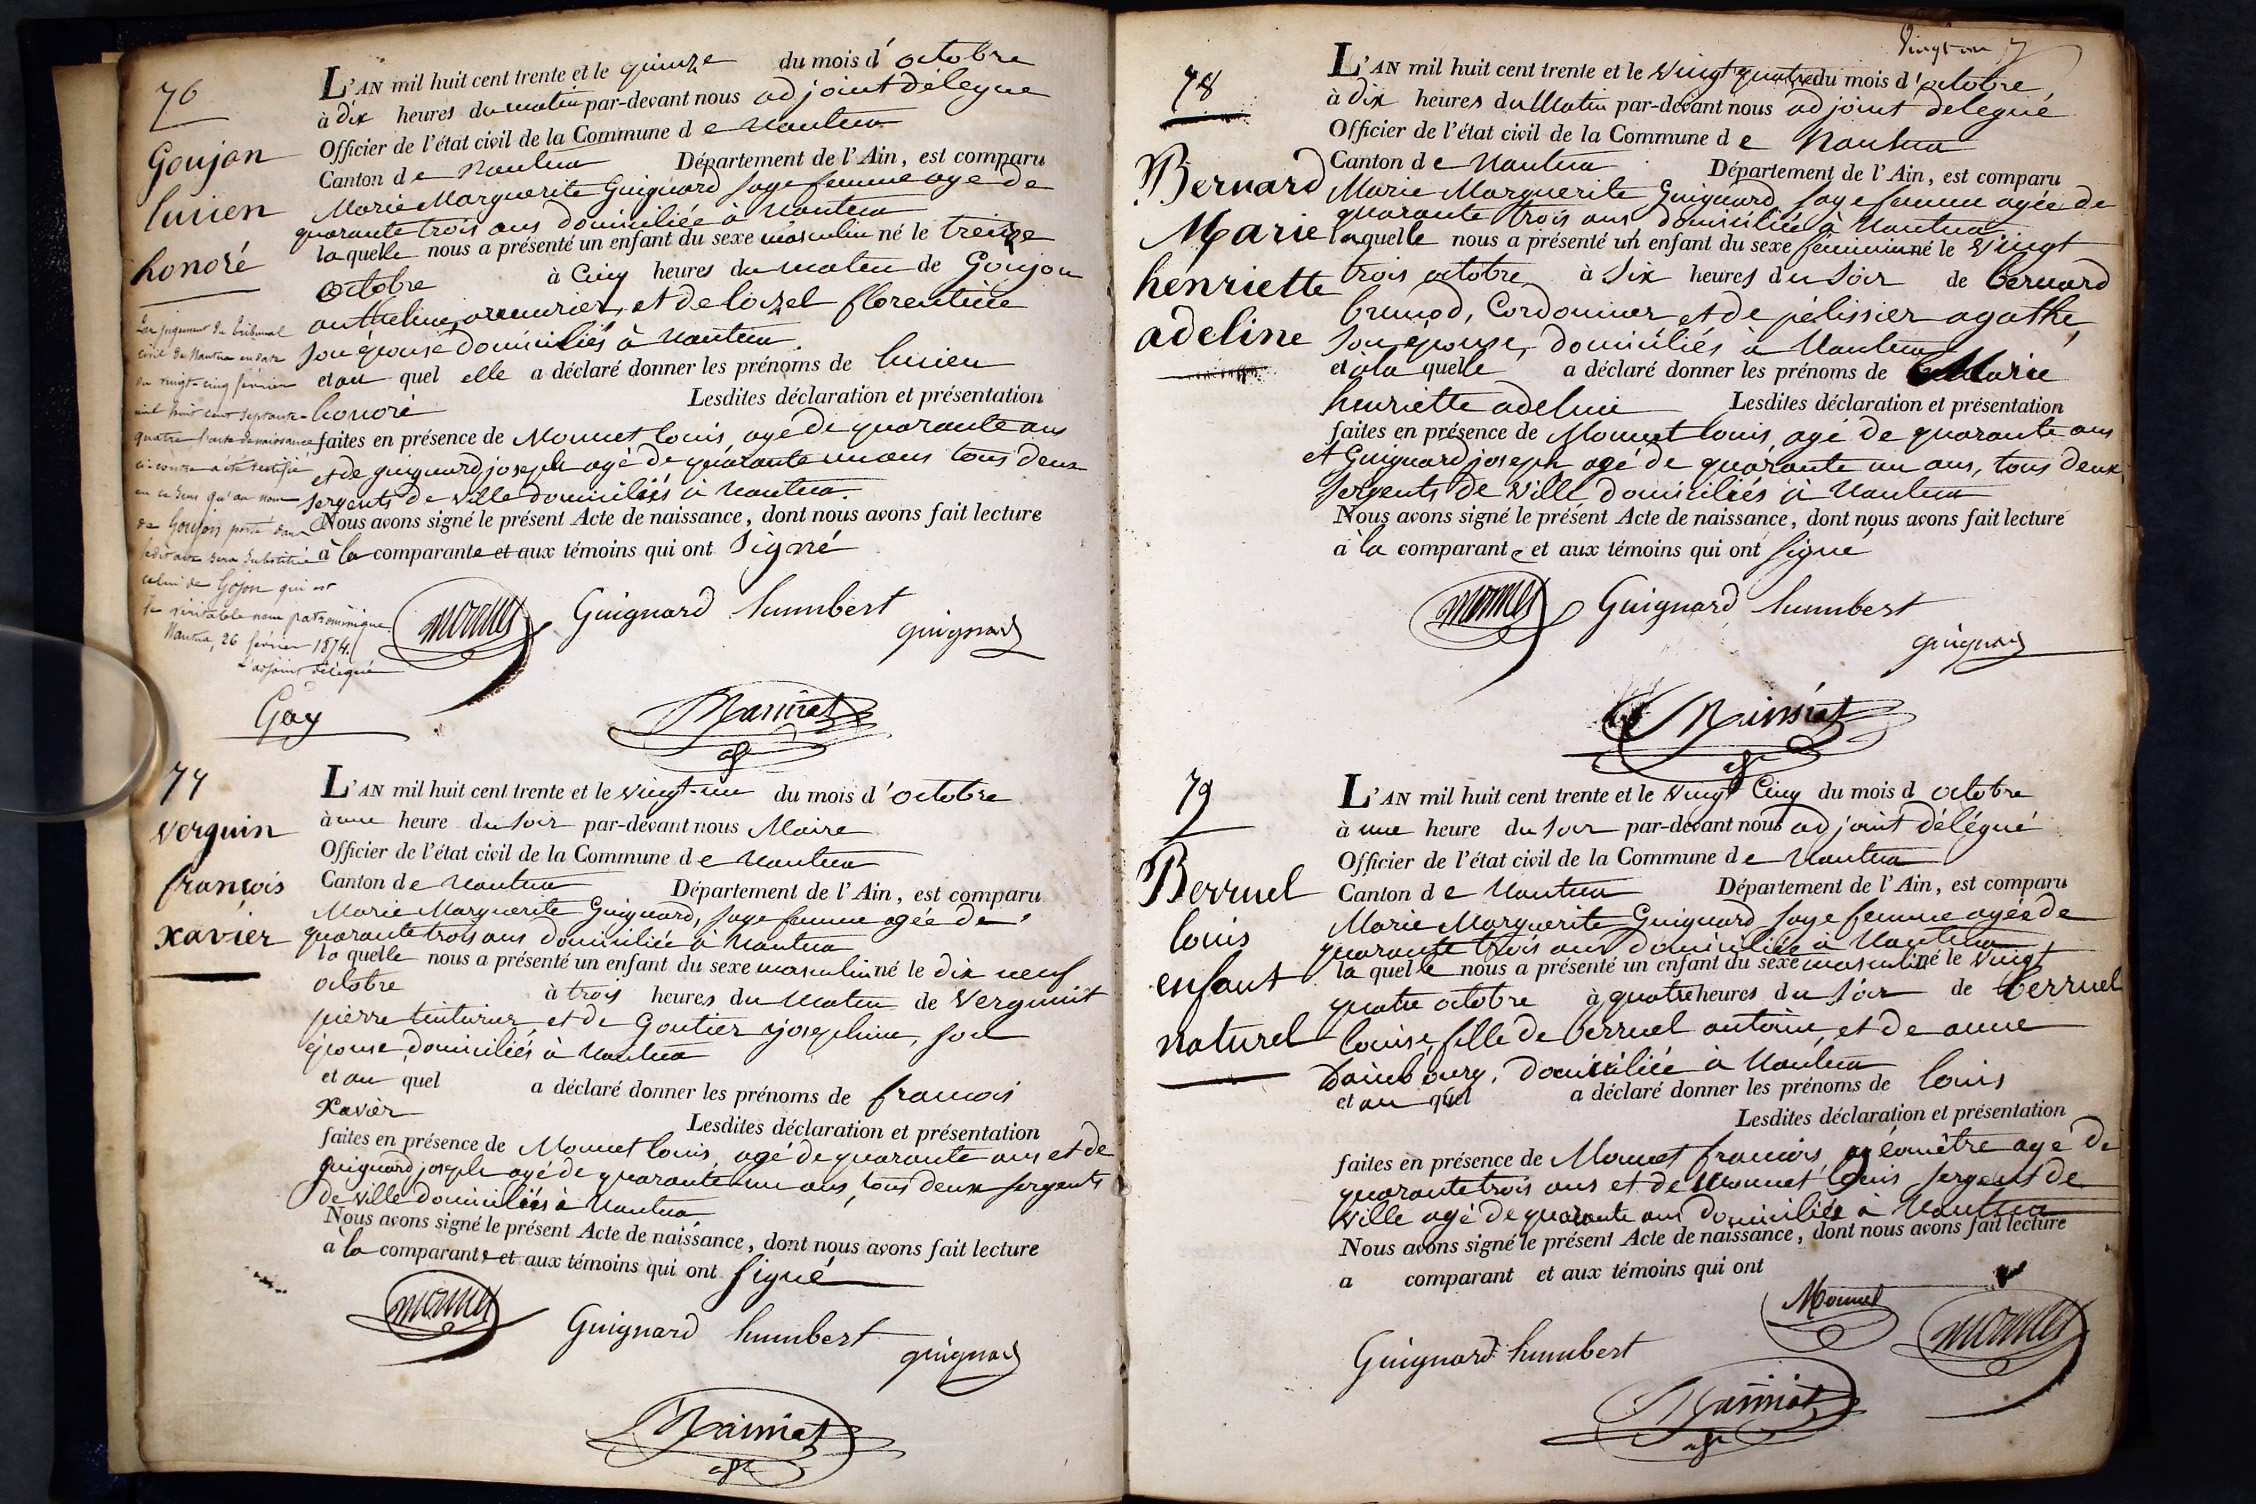 76
Goujon
lucien
honoré
L'AN mil huit cent trente et le quinze du mois d'octobre
à dix heures du matin par-devant nous adjoint délégué
Officier de l'état civil de la Commune de Nantua
Canton de Nantua Département de l'Ain, est comparu
Marie Marguerite Guignard sage femme agé de
quarante trois ans domiciliée à Nantua
laquelle nous a présenté un enfant du sexe masculin né le treize
octobre à cinq heures du matin de Goujon
anthelme, armurier, et de loizel florentine
son épouse domiciliés à Nantua
et au quel elle a déclaré donner les prénoms de lucien
honoré Lesdites déclaration et présentation
faites en présence de Monnet louis, agé de quarante ans
et de guignard joseph agé de quarante un ans tous deux
sergents de ville domiciliés à Nantua.
Nous avons signé le présent Acte de naissance, dont nous avons fait lecture
à la comparante et aux témoins qui ont signé
Par jugement du tribunal
civil de Nantua en date
du vingt-cinq février
mil huit cent septante-
quatre l'acte de naissance
ci-contre a été rectifié
en ce sens qu'au nom
de Goujon porté dans
ledit acte sera substitué
celui de Gojon qui est
le véritable nom patronimique.
Nantua, 26 février 1874.
L'adjoint délégué
Gay
Monnet Guignard humbert
guignard
77
verguin
françois
xavier
L'AN mil huit cent trente et le vingt-un du mois d'octobre
à une heure du soir par-devant nous Maire
Officier de l'état civil de la Commune de Nantua
Canton de Nantua Département de l'Ain, est comparu
Marie Marguerite Guignard, sage femme agée de
quarante trois ans domiciliée à Nantua
la quelle nous a présenté un enfant du sexe masculin né le dix neuf
octobre à trois heures du matin de Verguint
pierre teinturier et de Goutier josephine, son
épouse domiciliés à Nantua
et au quel a déclaré donner les prénoms de francois
Xavier Lesdites déclaration et présentation
faites en présence de Monnet louis agé de quarante ans et de
guignard joseph agé de quarante un ans, tous deux sergents
de ville domiciliés à Nantua
Nous avons signé le présent Acte de naissance, dont nous avons fait lecture
à la comparante et aux témoins qui ont signé
Monnet Guignard humbert
guignard
78
Bernard
Marie
henriette
adeline
L'AN mil huit cent trente et le vingt quatre du mois d'octobre
à dix heures du Matin par-devant nous adjoint delegué
Officier de l'état civil de la Commune de Nantua
Canton de Nantua Département de l'Ain, est comparu
Marie Marguerite Guignard sage femme agée de
quarante trois ans domiciliée à Nantua
laquelle nous a présenté un enfant du sexe féminin né le vingt
trois octobre à six heures du soir de bernard
brunod, Cordonnier et de pélissier agathe,
son épouse, domiciliés à Nantua
et à la quelle a déclaré donner les prénoms de Marie
henriette adeline Lesdites déclaration et présentation
faites en présence de Monnet louis agé de quarante ans
et Guignard joseph agé de quarante un ans, tous deux
sergents de ville domiciliés à Nantua
Nous avons signé le présent Acte de naissance, dont nous avons fait lecture
à la comparante et aux témoins qui ont signé
Monnet Guignard humbert
guignard
79
Berruel
louis
enfant
naturel
L'AN mil huit cent trente et le vingt Cinq du mois d octobre
à une heure du soir par-devant nous adjoint délégué
Officier de l'état civil de la Commune de Nantua
Canton de Nantua Département de l'Ain, est comparu
Marie Marguerite Guignard sage femme agée de
quarante trois ans domiciliée à Nantua
la quelle nous a présenté un enfant du sexe masculin né le vingt
quatre octobre à quatre heures du soir de berruel
louise fille de berruel antoine et de anne
domiciliée à Nantua
et au quel a déclaré donner les prénoms de louis
Lesdites déclaration et présentation
faites en présence de Monnet francois géomètre agé de
quarante trois ans et de Monnet louis sergent de
ville agé de quarante ans domiciliés à Nantua
Nous avons signé le présent Acte de naissance, dont nous avons fait lecture
a comparant et aux témoins qui ont
Monnet Monnet
Guignard humbert